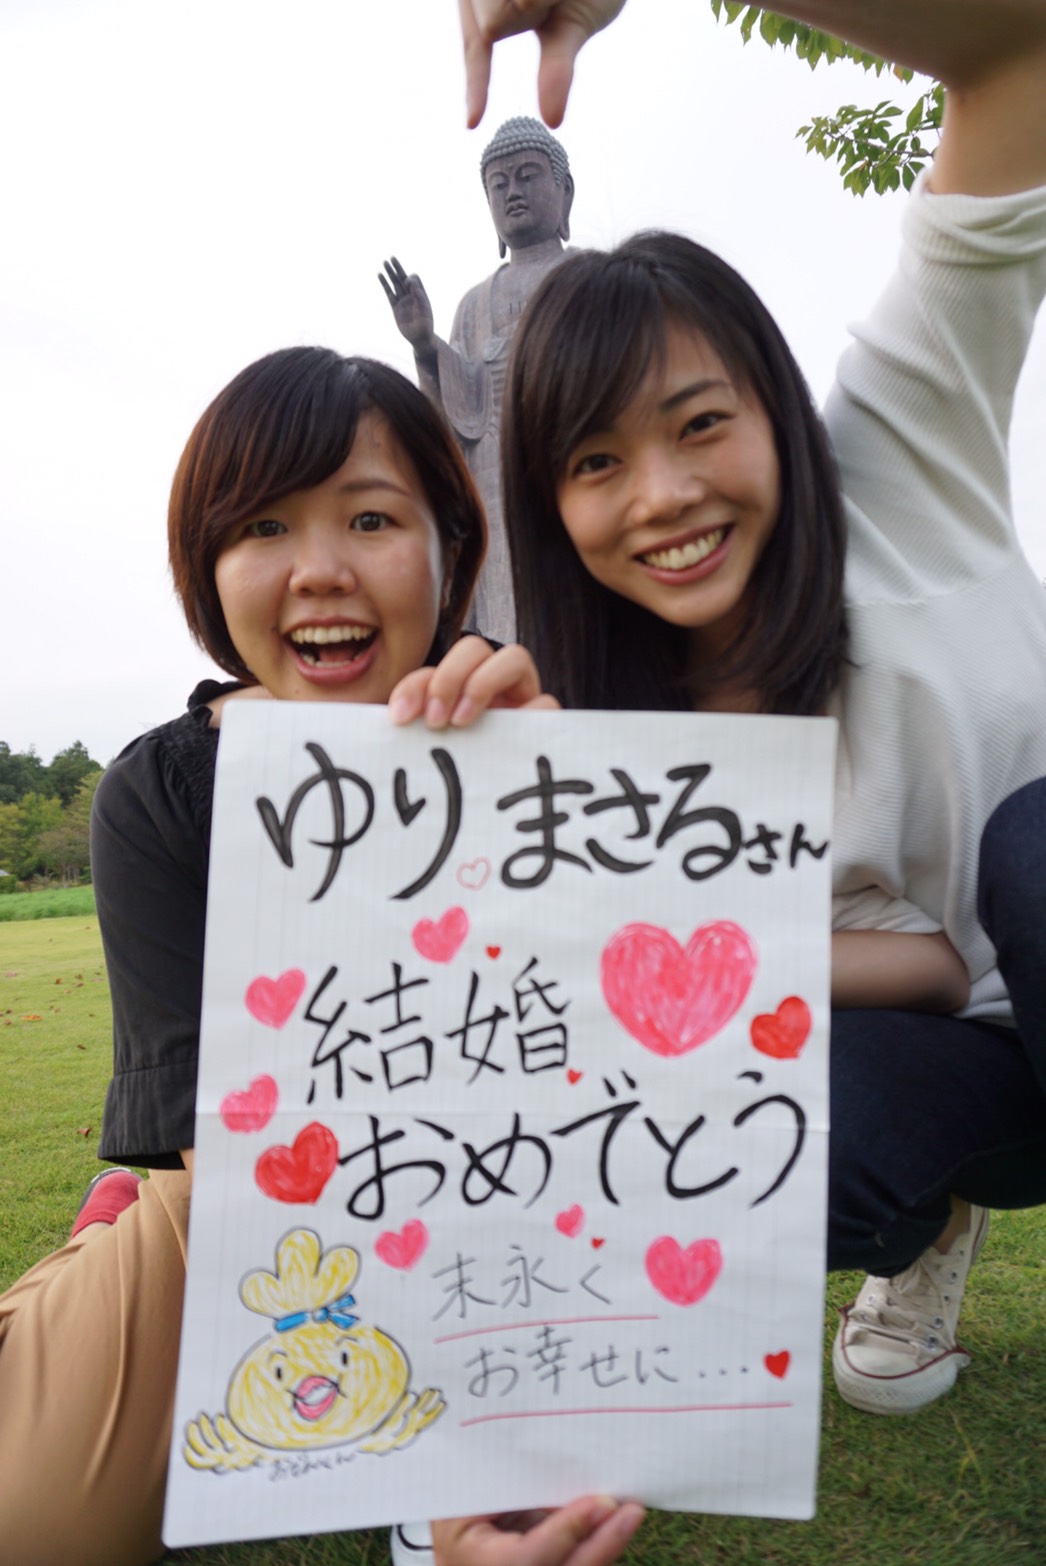 ゆり まさるさん
結婚
おめでとう
末永く
お幸せに...